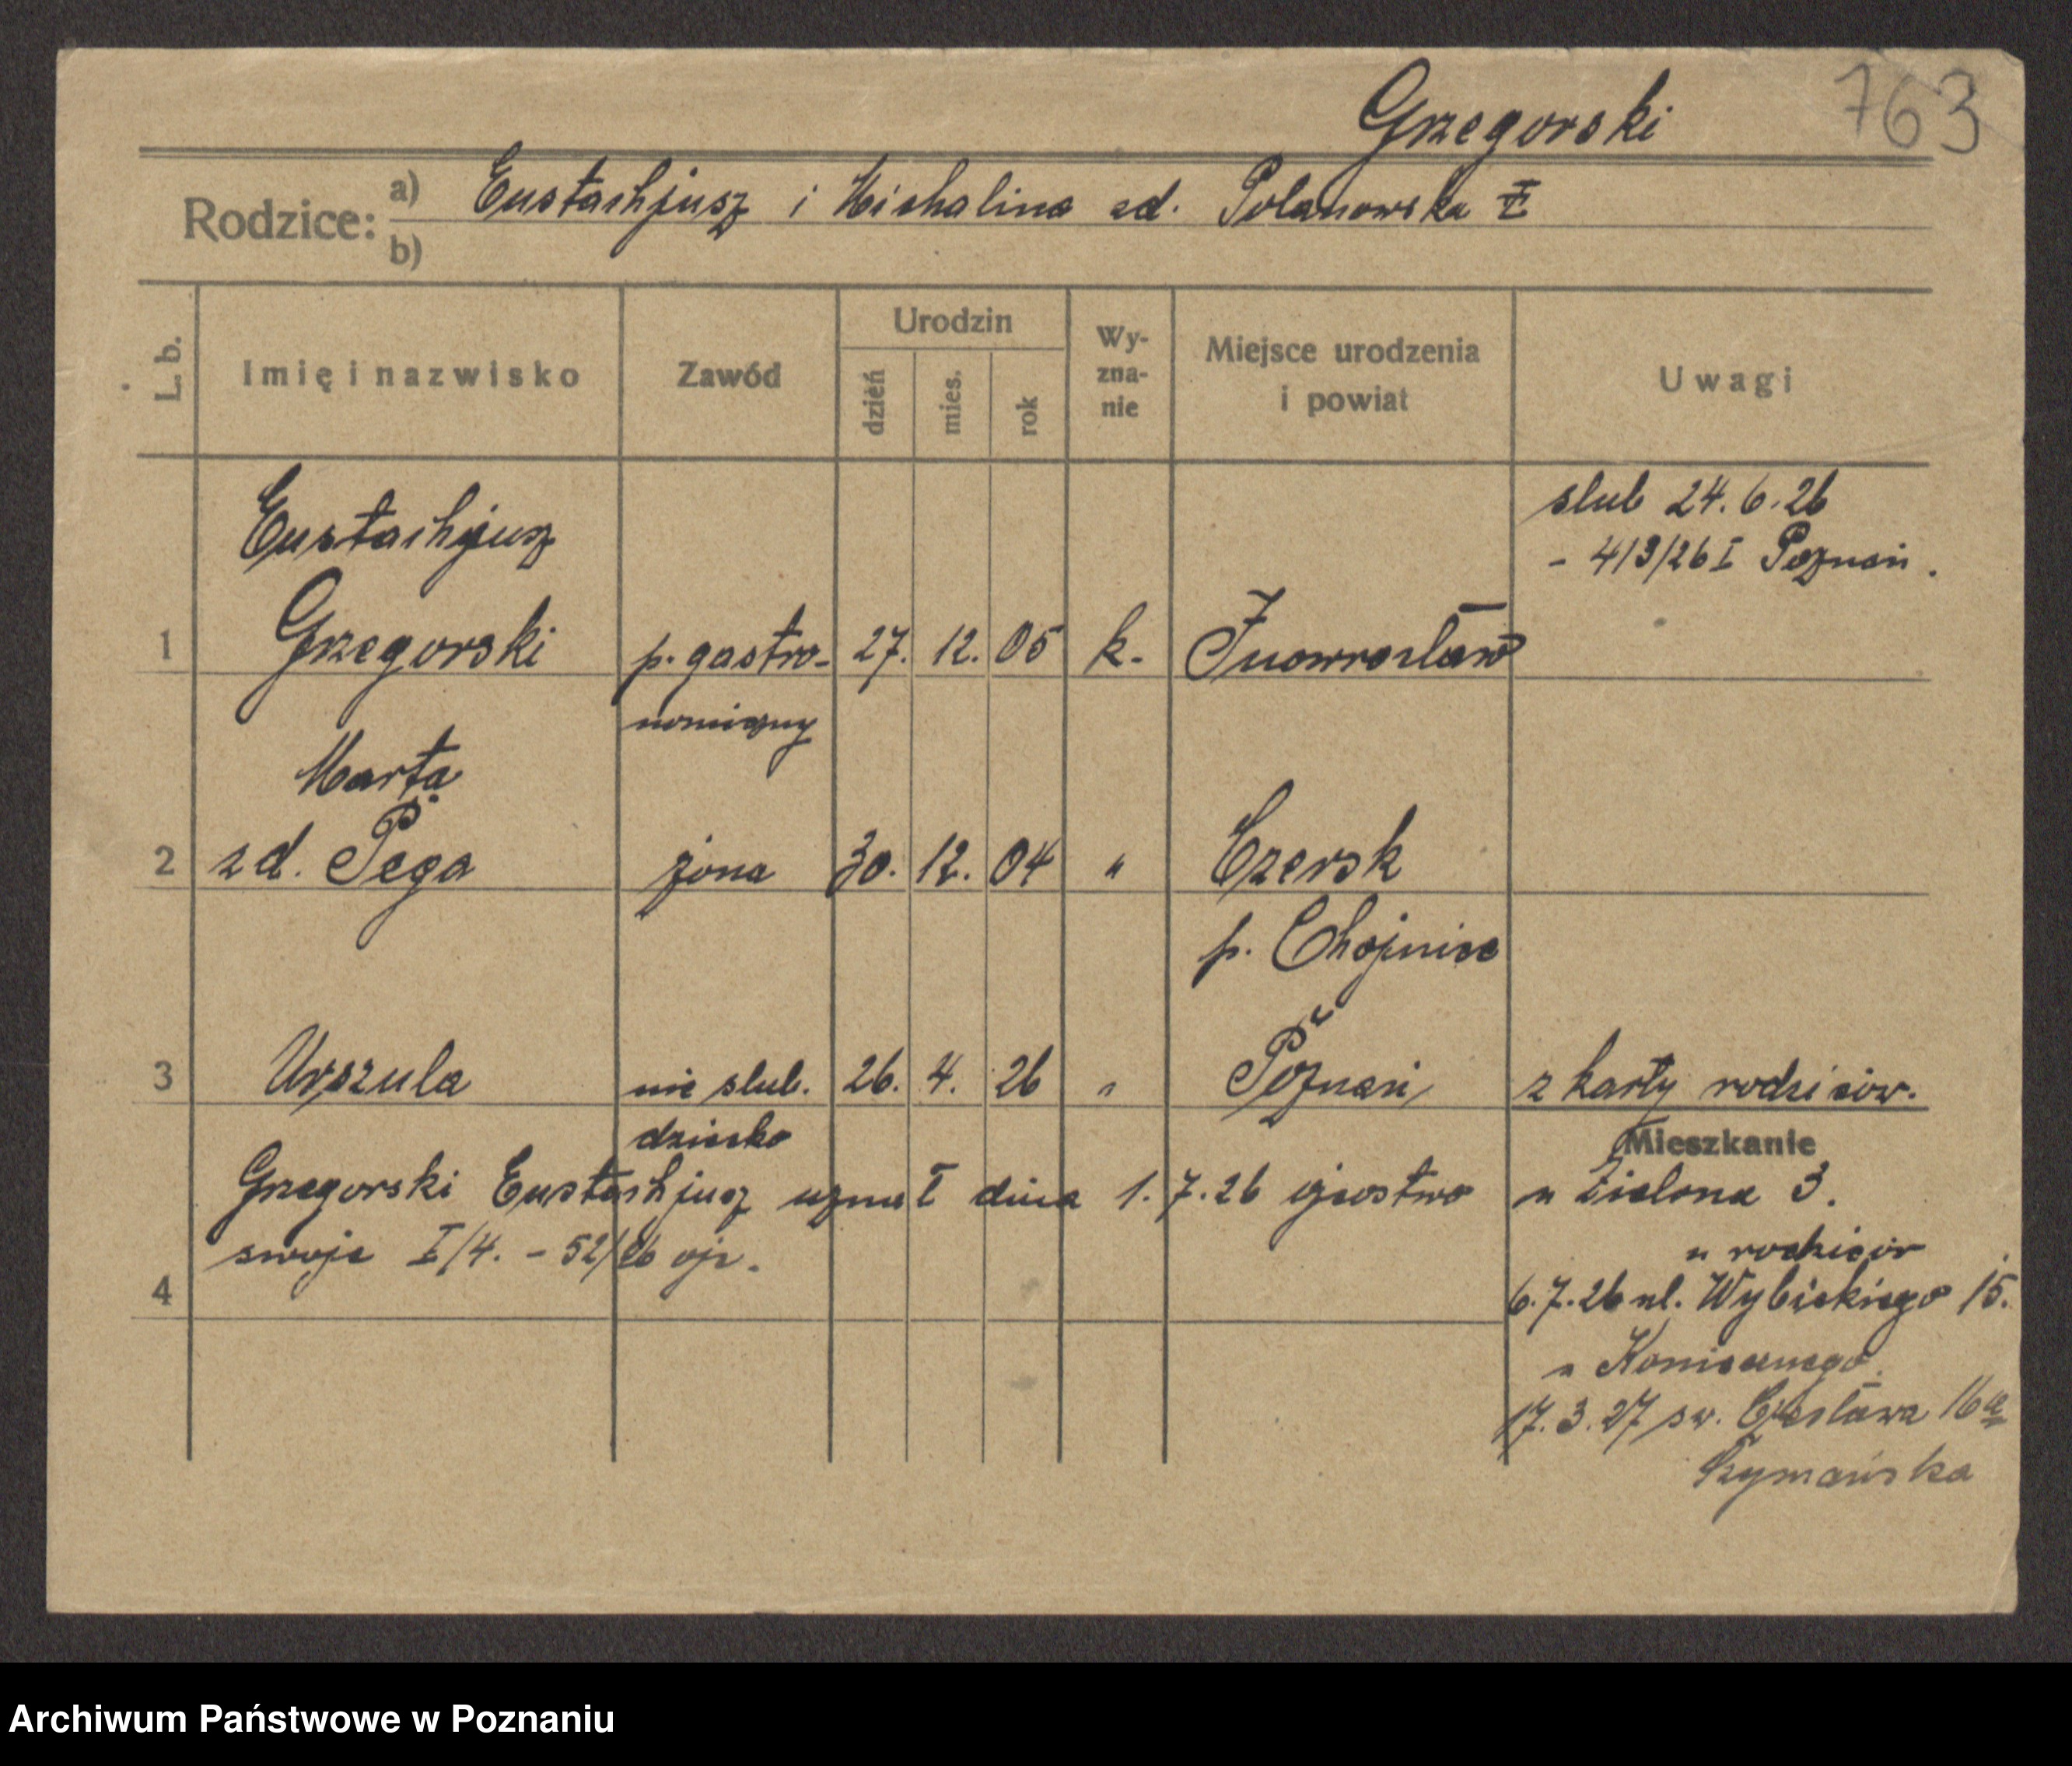 Grzegorski 763
Rodzice: a) Eustachjusz i Michalina zd. Polanowska I
b)
L. b. Imię i nazwisko Zawód Urodzin dzień mies. rok Wy-zna-nie Miejsce urodzenia i powiat Uwagi
Eustachjusz ślub 24.6.26
- 413/26 I Poznań.
1 Grzegorski p. gastro- 27. 12. 05 k. Inowrocław
nomiczny
Marta
2 zd. Pega żona 30. 12. 04 " Czersk
p. Chojnice
3 Urszula nie ślub. 26. 4. 26 " Poznań z karty rodziców.
dziecko Mieszkanie
Grzegorski Eustachjusz uznał dnia 1.7.26 ojcostwo Zielona 3.
swoje I/4. - 52/26 op. u rodziców
4 6.7.26 ul. Wybickiego 15.
u Koniecznego
17.3.27 św. Czesława 16a
Szymańska
Archiwum Państwowe w Poznaniu